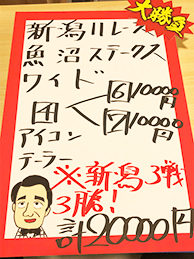 大勝負
新潟11レース
魚沼ステークス
ワイド
⑥10000円
⑦10000円
アイコン
テーラー
※新潟3戦
3勝！
計20000円